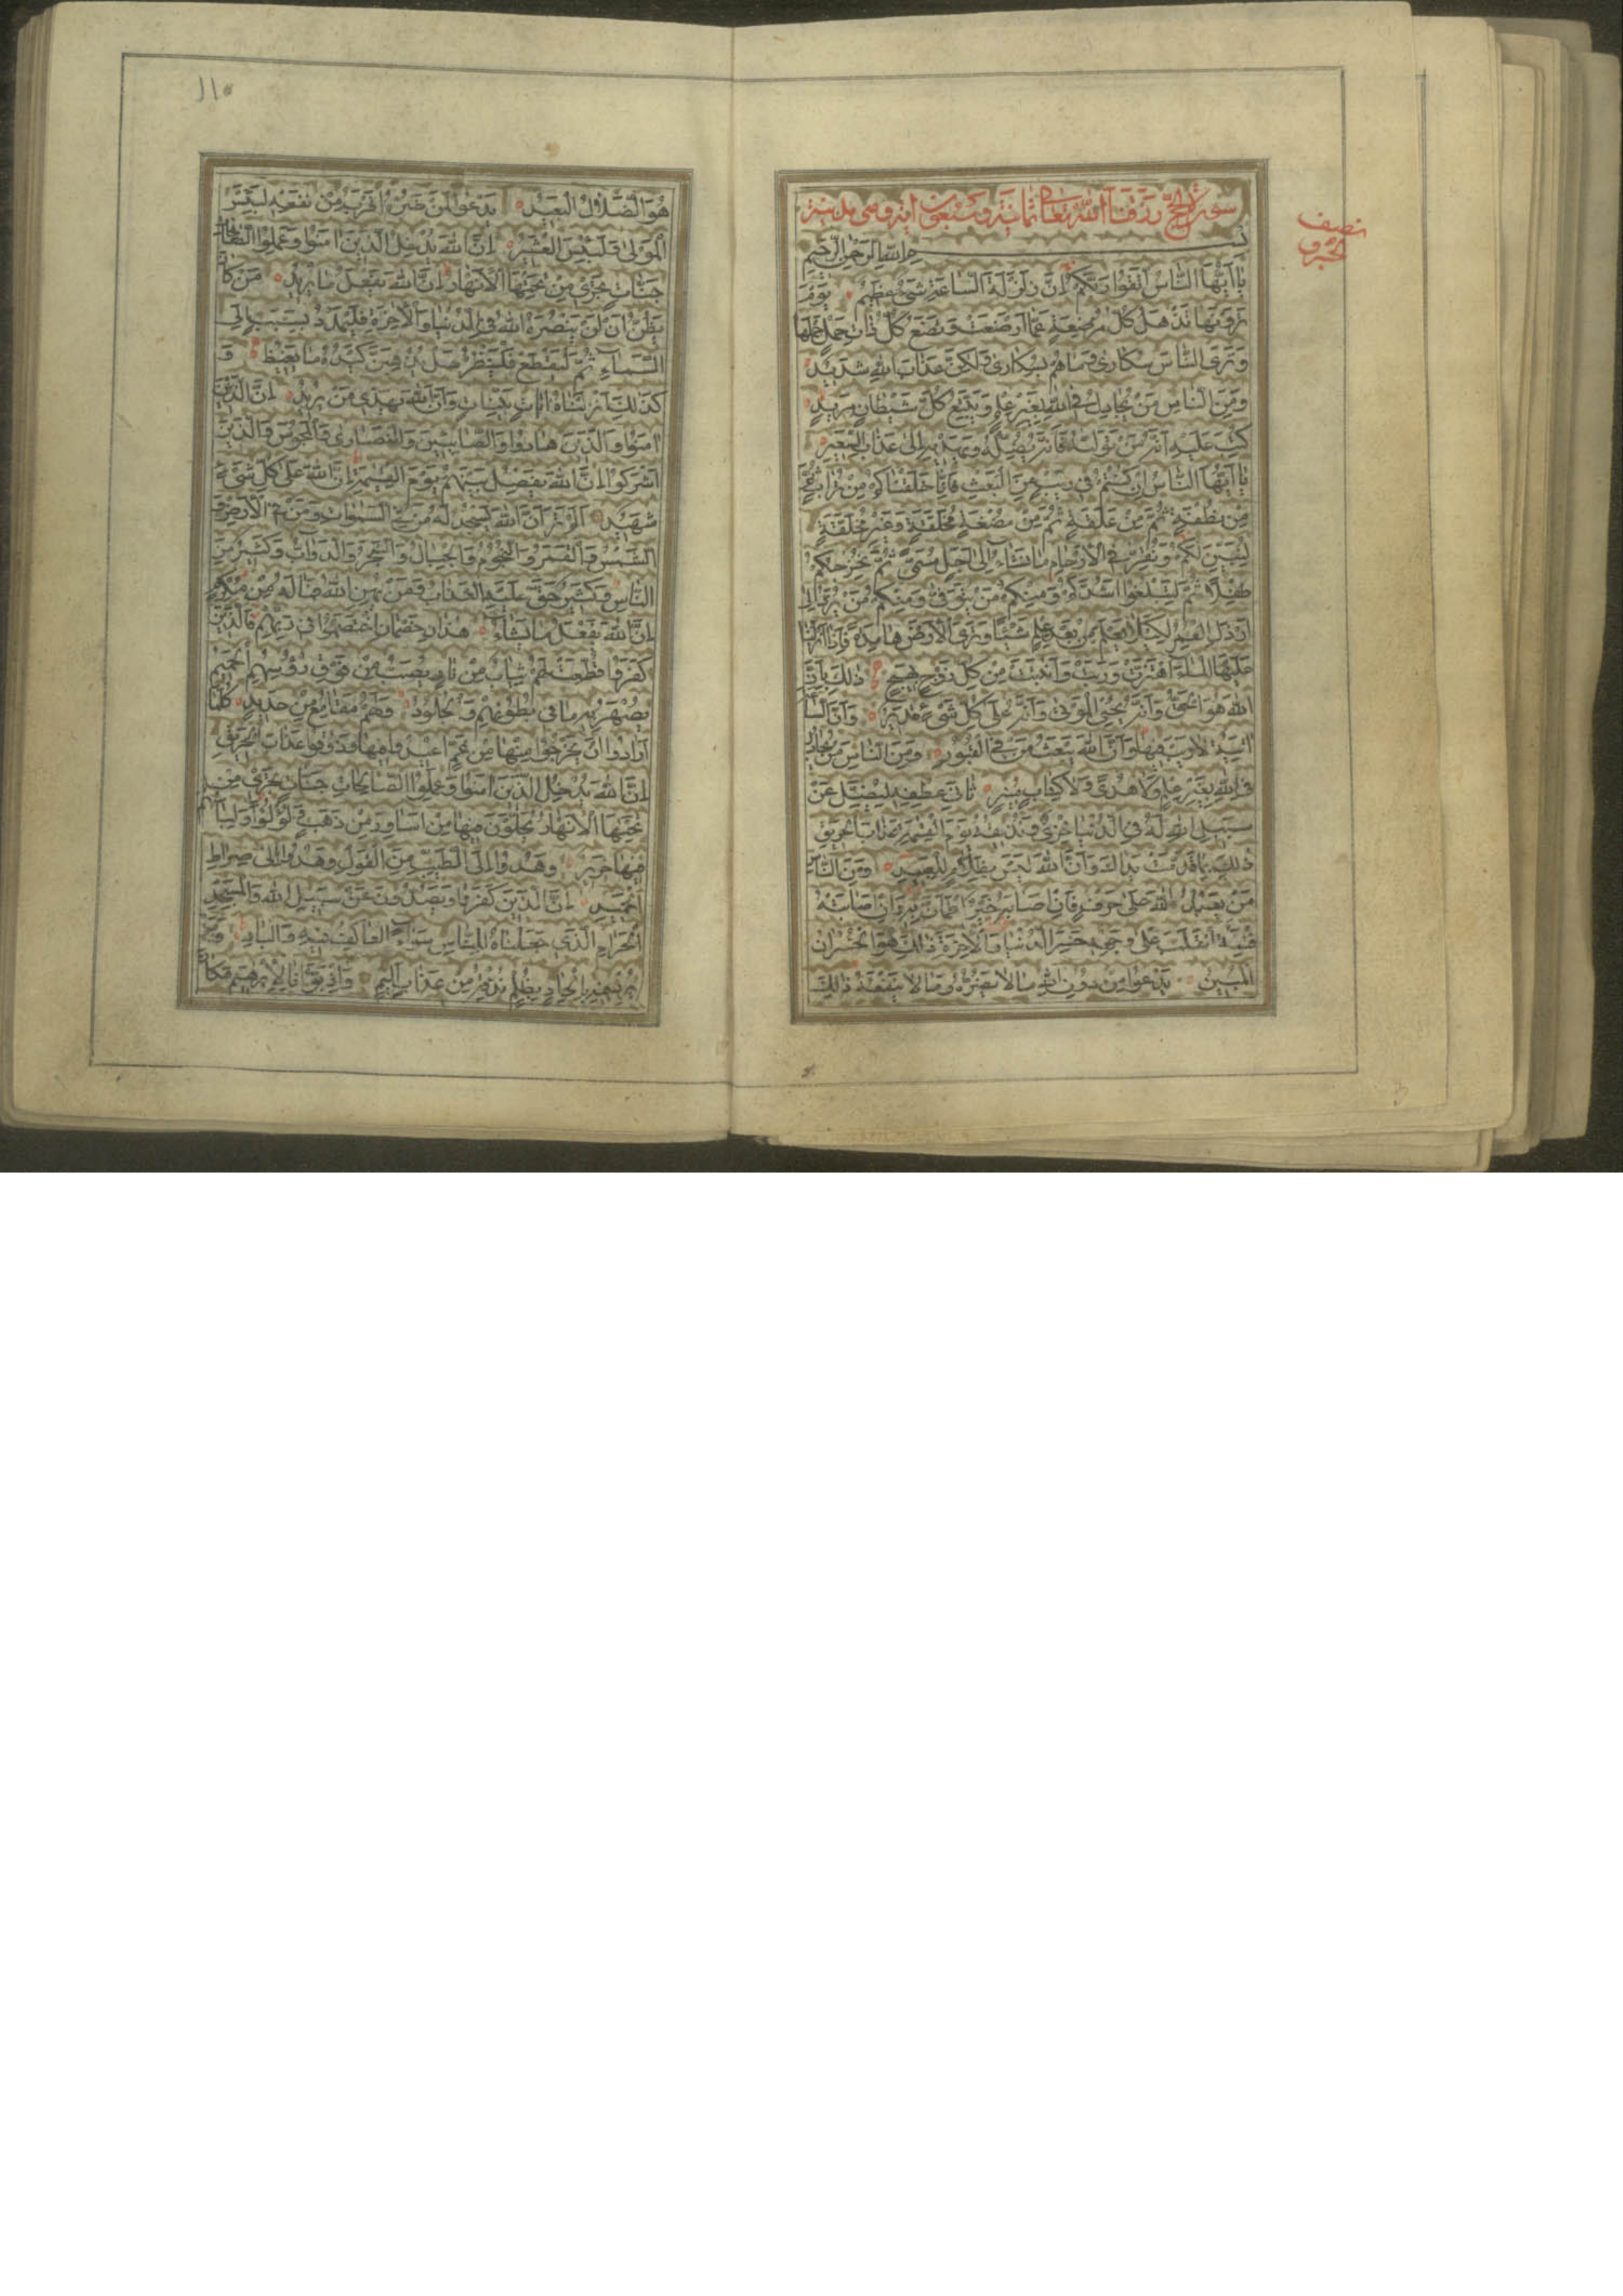 سورة الحج رزقنا الله تعالى ثمانية وسبعون اية وهي مدنية
نصف
بسم الله الرحمن الرحيم
يا ايها الناس اتقوا ربكم ان زلزلة الساعة شيء عظيم يوم
ترونها تذهل كل مرضعة عما ارضعت وتضع كل ذات حمل حملها
وترى الناس سكارى وما هم بسكارى ولكن عذاب الله شديد
ومن الناس من يجادل في الله بغير علم ويتبع كل شيطان مريد
كتب عليه انه من تولاه فانه يضله ويهديه الى عذاب السعير
يا ايها الناس ان كنتم في ريب من البعث فانا خلقناكم من تراب ثم
من نطفة ثم من علقة ثم من مضغة مخلقة وغير مخلقة
لنبين لكم ونقر في الارحام ما نشاء الى اجل مسمى ثم نخرجكم
طفلا ثم لتبلغوا اشدكم ومنكم من يتوفى ومنكم من يرد الى
ارذل العمر لكيلا يعلم من بعد علم شيئا وترى الارض هامدة فاذا انزلنا
عليها الماء اهتزت وربت وانبتت من كل زوج بهيج ذلك بان
الله هو الحق وانه يحيي الموتى وانه على كل شيء قدير وان الساعة
اتية لا ريب فيها وان الله يبعث من في القبور ومن الناس من يجادل
في الله بغير علم ولا هدى ولا كتاب منير ثاني عطفه ليضل عن
سبيل الله له في الدنيا خزي ونذيقه يوم القيمة عذاب الحريق
ذلك بما قدمت يداك وان الله ليس بظلام للعبيد ومن الناس
من يعبد الله على حرف فان اصابه خير اطمان به وان اصابته
فتنة انقلب على وجهه خسر الدنيا والاخرة ذلك هو الخسران
المبين يدعوا من دون الله ما لا يضره وما لا ينفعه ذلك
١١٥
هو الضلال البعيد يدعوا لمن ضره اقرب من نفعه لبئس
المولى ولبئس العشير ان الله يدخل الذين امنوا وعملوا الصالحات
جنات تجري من تحتها الانهار ان الله يفعل ما يريد من كان
يظن ان لن ينصره الله في الدنيا والاخرة فليمدد بسبب الى
السماء ثم ليقطع فلينظر هل يذهبن كيده ما يغيظ و
كذلك انزلناه ايات بينات وان الله يهدي من يريد ان الذين
امنوا والذين هادوا والصابئين والنصارى والمجوس والذين
اشركوا ان الله يفصل بينهم يوم القيمة ان الله على كل شيء
شهيد الم تر ان الله يسجد له من في السموات ومن في الارض و
الشمس والقمر والنجوم والجبال والشجر والدواب وكثير من
الناس وكثير حق عليه العذاب ومن يهن الله فما له من مكرم
ان الله يفعل ما يشاء هذان خصمان اختصموا في ربهم فالذين
كفروا قطعت لهم ثياب من نار يصب من فوق رؤسهم الحميم
يصهر به ما في بطونهم والجلود ولهم مقامع من حديد كلما
ارادوا ان يخرجوا منها من غم اعيدوا فيها وذوقوا عذاب الحريق
ان الله يدخل الذين امنوا وعملوا الصالحات جنات تجري من
تحتها الانهار يحلون فيها من اساور من ذهب ولؤلؤا ولباسهم
فيها حرير وهدوا الى الطيب من القول وهدوا الى صراط
الحميد ان الذين كفروا ويصدون عن سبيل الله والمسجد
الحرام الذي جعلناه للناس سواء العاكف فيه والباد ومن
يرد فيه بالحاد بظلم نذقه من عذاب اليم واذ بوانا لابرهيم مكان